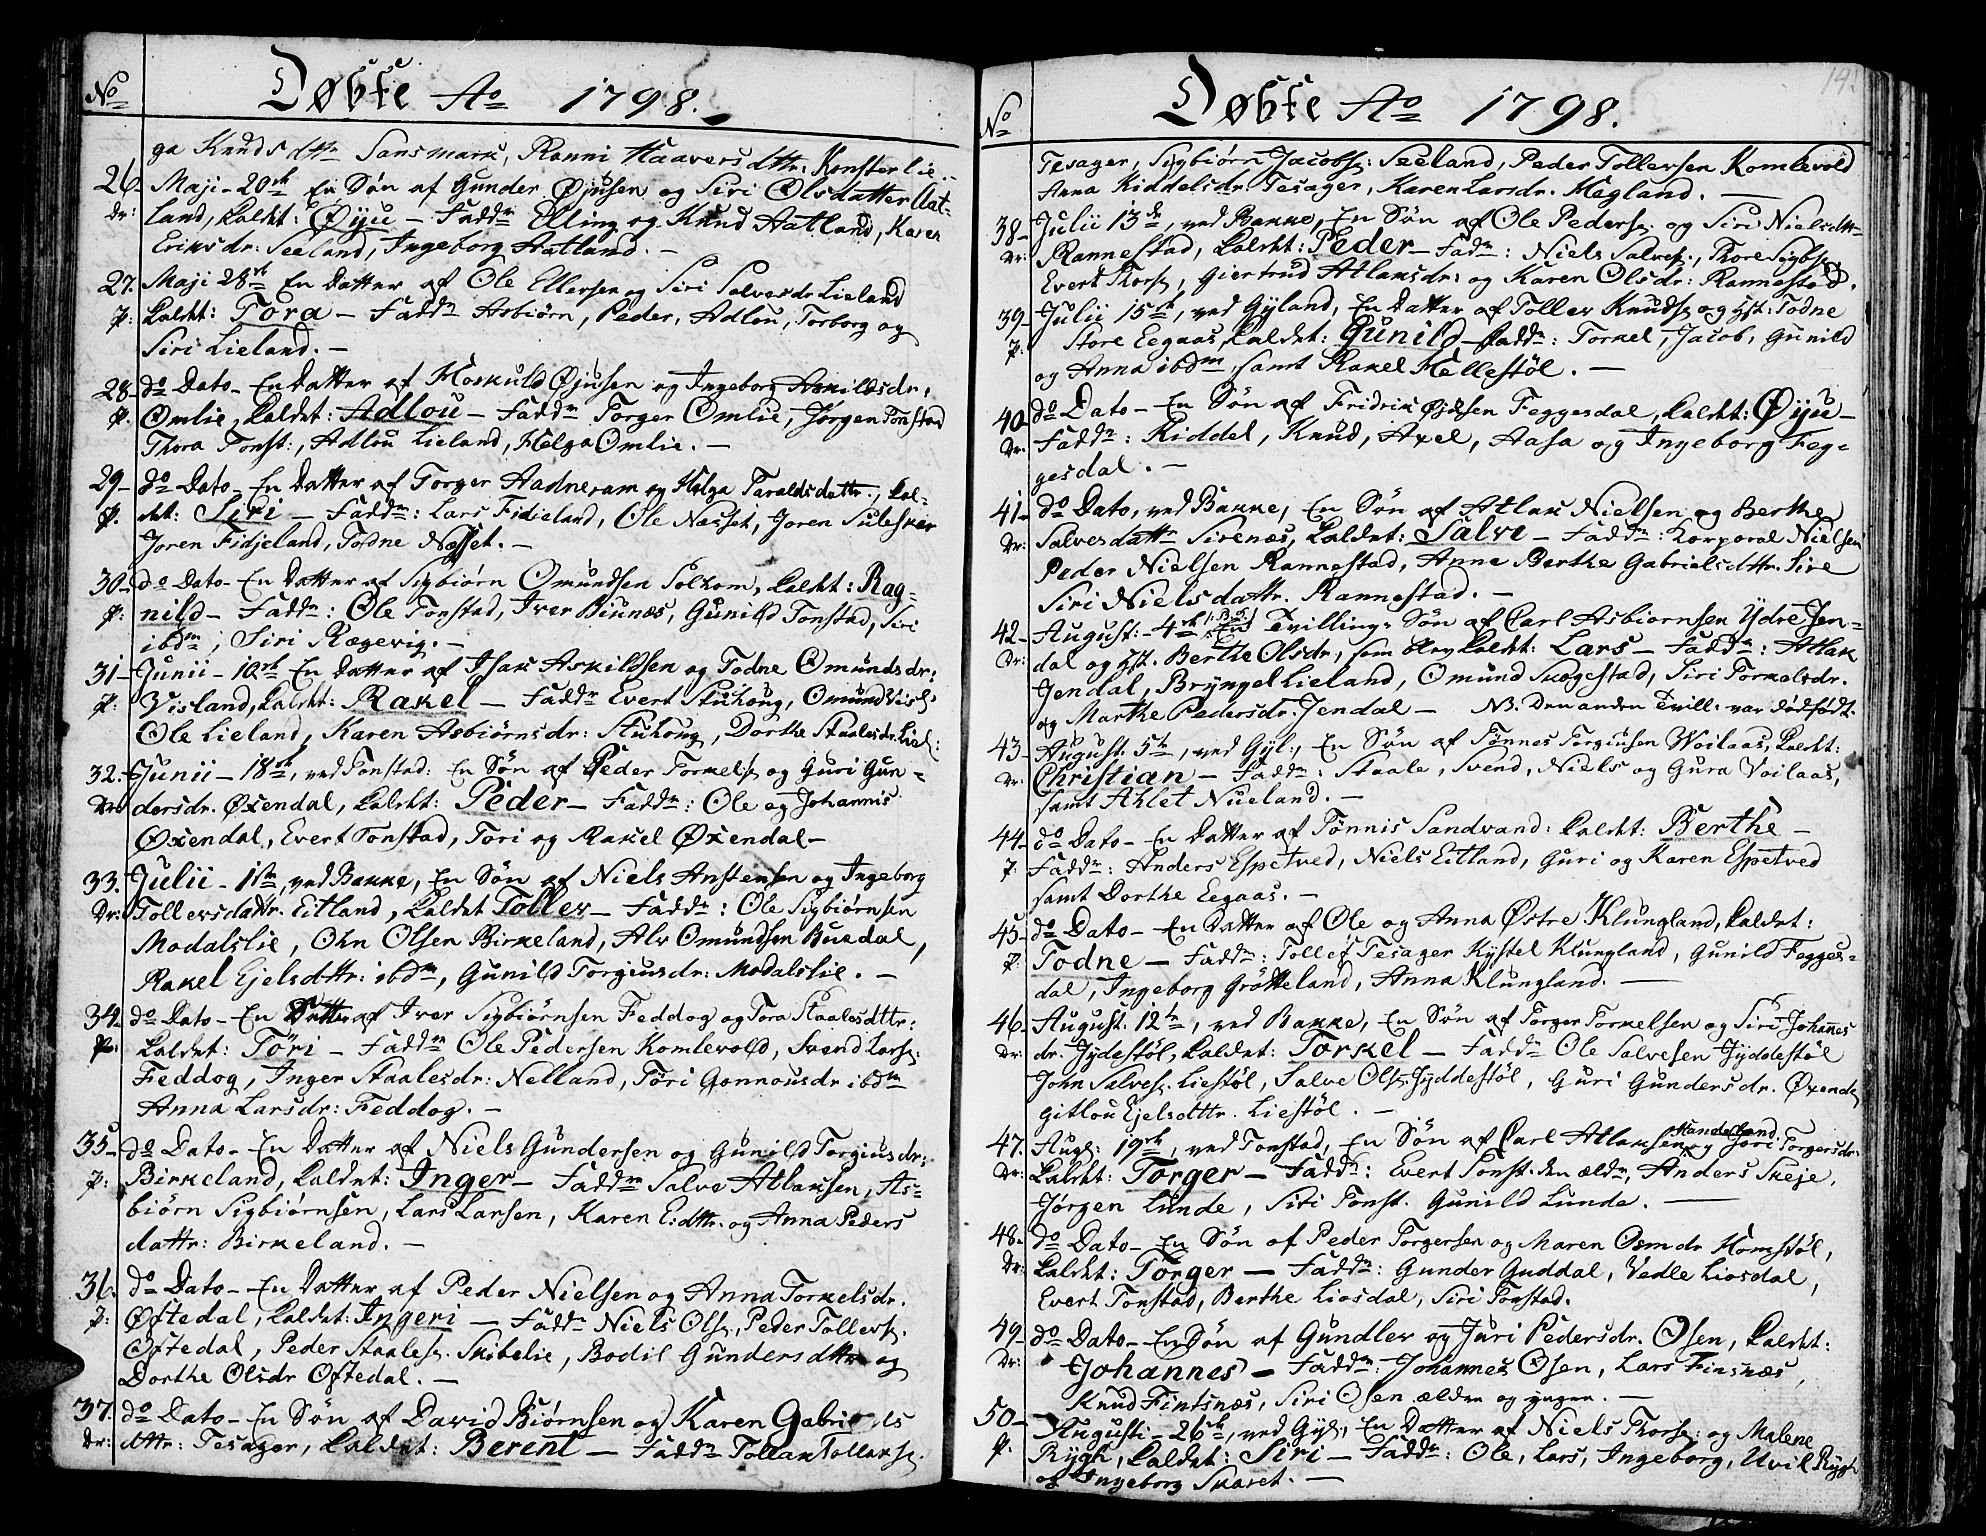 No
Døbte Ao 1798.
ga Knudsdttr Sansmark, Ranni Haaversdttr: Konsterlie.
26. Maji - 20de En Søn af Gunder Øjusen og Siri Olsdatter Aat-
Dr: land, kaldet: Øyu - Faddr Elling og Knud Aatland, Karen
Eriksdr: Seeland, Ingeborg Aatland. -
27. Maji 28de En Datter af Ole Ellersen og Siri Salvesdr Lieland
p: kaldet: Tora - Faddr Asbiørn, Peder, Adlou, Torborg og
Siri Lieland. -
28. do Dato - En Datter af Hoskuld Øjusen og Ingeborg Askildsdr:
p. Omlie, kaldet: Adlou - Faddr Torger Omlie, Jørgen Tonstad
Thora Tonst:, Adlou Lieland, Helga Omlie. -
29 - do Dato - En Datter af Torger Aadneram og Helga Taraldsdattr., kal-
p. det: Siri - Faddr: Lars Fidjeland, Ole Næsset, Joren Sulesker
Joren Fidjeland, Todne Næsset. -
30 - do Dato - En Datter af Sigbiørn Omundsen Solhom, kaldt: Rag-
p: nild - Faddr: Ole Tonstad, Iver Biunæs, Gunild Tonstad, Siri
ibdm; Siri Rægevig. -
31 - Junii - 10de En Datter af Isak Askildsen og Todne Omundsdr:
p: Visland, kaldt: Rakel - Faddr Evert Stuhoug, Omund Visl:
Ole Lieland, Karen Asbiørnsdr: Stuhoug, Dorthe Staalesdr Liel:
32. Junii - 18de, ved Tonstad: En Søn af Peder Torkels: og Guri Gun-
Dr: dersdr. Øxendal, kaldt: Peder - Faddr: Ole og Johannis
Øxendal, Evert Tonstad, Tori og Rakel Øxendal -
33. Julii - 1ste, ved Bakke, En Søn af Niels Anstensen og Ingeborg
Dr: Tollersdattr. Eitland, kaldet Toller - Faddr: Ole Sigbiørnsen
Modalslie, Ohn Olsen Birkeland, Alv Omundsen Buedal,
Rakel Ejelsdttr: ibdm, Gunild Torgiusdr: Modalslie. -
34. do Dato - En Datter af Iver Sigbiørnsen Feddog og Tora Staalesdttr:
p: kaldet: Tori - Faddr Ole Pedersen Komlevold, Svend Lars:
Feddog, Inger Staalesdr: Nelland, Tori Gonnousdr ibdm
Anna Larsdr: Feddog. -
35 do Dato - En Datter af Niels Gundersen og Gunild Torgiusdr:
p: Birkeland, kaldet: Inger - Faddr Salve Atlaksen, As-
biørn Sigbiørnsen, Lars Larsen, Karen E:dttr. og Anna Peders
dattr: Birkeland. -
36. do Dato - En Datter af Peder Nielsen og Anna Torkelsdr.
p: Øftedal, kaldet: Ingeri - Faddr Niels Ols:, Peder Tollers:
Oftedal, Peder Staales: Skibelie, Bodil Gundersdttr og
Dorthe Olsdr Oftedal. -
37. do Dato - En Søn af David Biørnsen og Karen Gabriels
Dr: dttr: Tesager, kaldet: Berent - Faddr Tollak Tollaks:
No
Døbte Ao 1798.
141
Tesager, Sigbiørn Jacobs: Seeland, Peder Tollevsen Komlevold
Anna Kiddelsdr. Tesager, Karen Larsdr. Mægland. -
38 - Julii 13de, ved Bakke, En Søn af Ole Peders: og Siri Nielsdttr
Dr: Rannestad, kaldet: Peder - Faddr: Niels Salves:, Thore Sigbs:
Evert Thors:, Giertrud Atlaksdr: og Karen Olsdr: Rannestad.
39 - Julii 15de, ved Gyland, En Datter af Tollev Knuds: og Hst: Todne
p: Store Eegaas, kaldet: Gunild - Faddr: Torkel, Jacob, Gunild
og Anna ibdm samt Rakel Hellestøl. -
40 do Dato - En Søn af Fridrik Øjusen Feggesdal, kaldt: Øyu -
Dr: Faddr: Kiddel, Knud, Axel, Aasa og Ingeborg Feg-
gesdal. -
41 - do Dato, ved Bakke, En Søn af Atlak Nielsen og Berthe
Dr: Salvesdattr Sirenæs, kaldet: Salve - Faddr: Korporal Nielsen
Peder Nielsen Rannestad, Anne Berthe Gabrielsdttr. Sire
Siri Nielsdattr. Rannestad. -
42 - August: - 4de En Tvilling-Søn af Carl Asbiørnsen Ydre Jen-
Dr: dal og Hst. Berthe Olsdr, som blev kaldt: Lars - Faddr: Atlak
Jendal, Bryngel Lieland, Omund Skogestad, Siri Torkelsdr.
og Marthe Pedersdr. Jendal - NB. Den anden Tvill: var dødfødt.
43 - August 5te, ved Gyl:, En Søn af Tønnes Torgiusen Woilaas, kaldt:
Dr: Christian - Faddr: Staale, Svend, Niels og Gura Voilaas,
samt Ahlet Nueland. -
44 - do Dato - En Datter af Tønnis Sandvand: kaldt: Berthe -
p: Faddr: Anders Espetved, Niels Eitland, Guri og Karen Espetved
samt Dorthe Eegaas. -
45 - do Dato - En Datter af Ole og Anna Østre Klungland, kaldet:
p: Todne - Faddr: Tollef Tesager Kystel Klungland, Gunild Fegges-
dal, Ingeborg Grøtteland, Anna Klungland. -
46 - August. 12te, ved Bakke, En Søn af Torger Torkelsen og Siri Johanes
Dr: dr. Jydestøl, kaldet: Torkel - Faddr Ole Salvesen Jyddestøl
John Salves: Liestøl, Salve Ols: Jyddestøl, Guri Gundersdr. Øxendal
Gitlou Ejelsdttr. Liestøl. -
47. Aug: 19de, ved Tonstad, En Søn af Carl Atlaksen Handeland og Jori Torgersdr:
Dr: kaldet: Torger - Faddr: Evert Tonst. den ældr, Anders Skeje,
Jørgen Lunde, Siri Tonst. Gunild Lunde. -
48. do Dato - En Søn af Peder Torgersen og Maren Osmdr Homstøl,
Dr: kaldet: Torger - Faddr: Gunder Guddal, Vedle Liosdal,
Evert Tonstad, Berthe Liosdal, Siri Tonstad.
49 - do Dato - En Søn af Gundlev og Juri Pedersdr. Osen, kaldt:
Dr: Johannes - Faddr: Johannes Osen, Lars Finsnæs,
Knud Fintsnæs, Siri Osen ældre og yngre. -
50 - Augusti - 26de, ved Gyl:, En Datter af Niels Thors: og Malene
p. Rygh, kaldet: Siri - Faddr: Ole, Lars, Ingeborg, Uvil Rygh
og Ingeborg Skaret. -